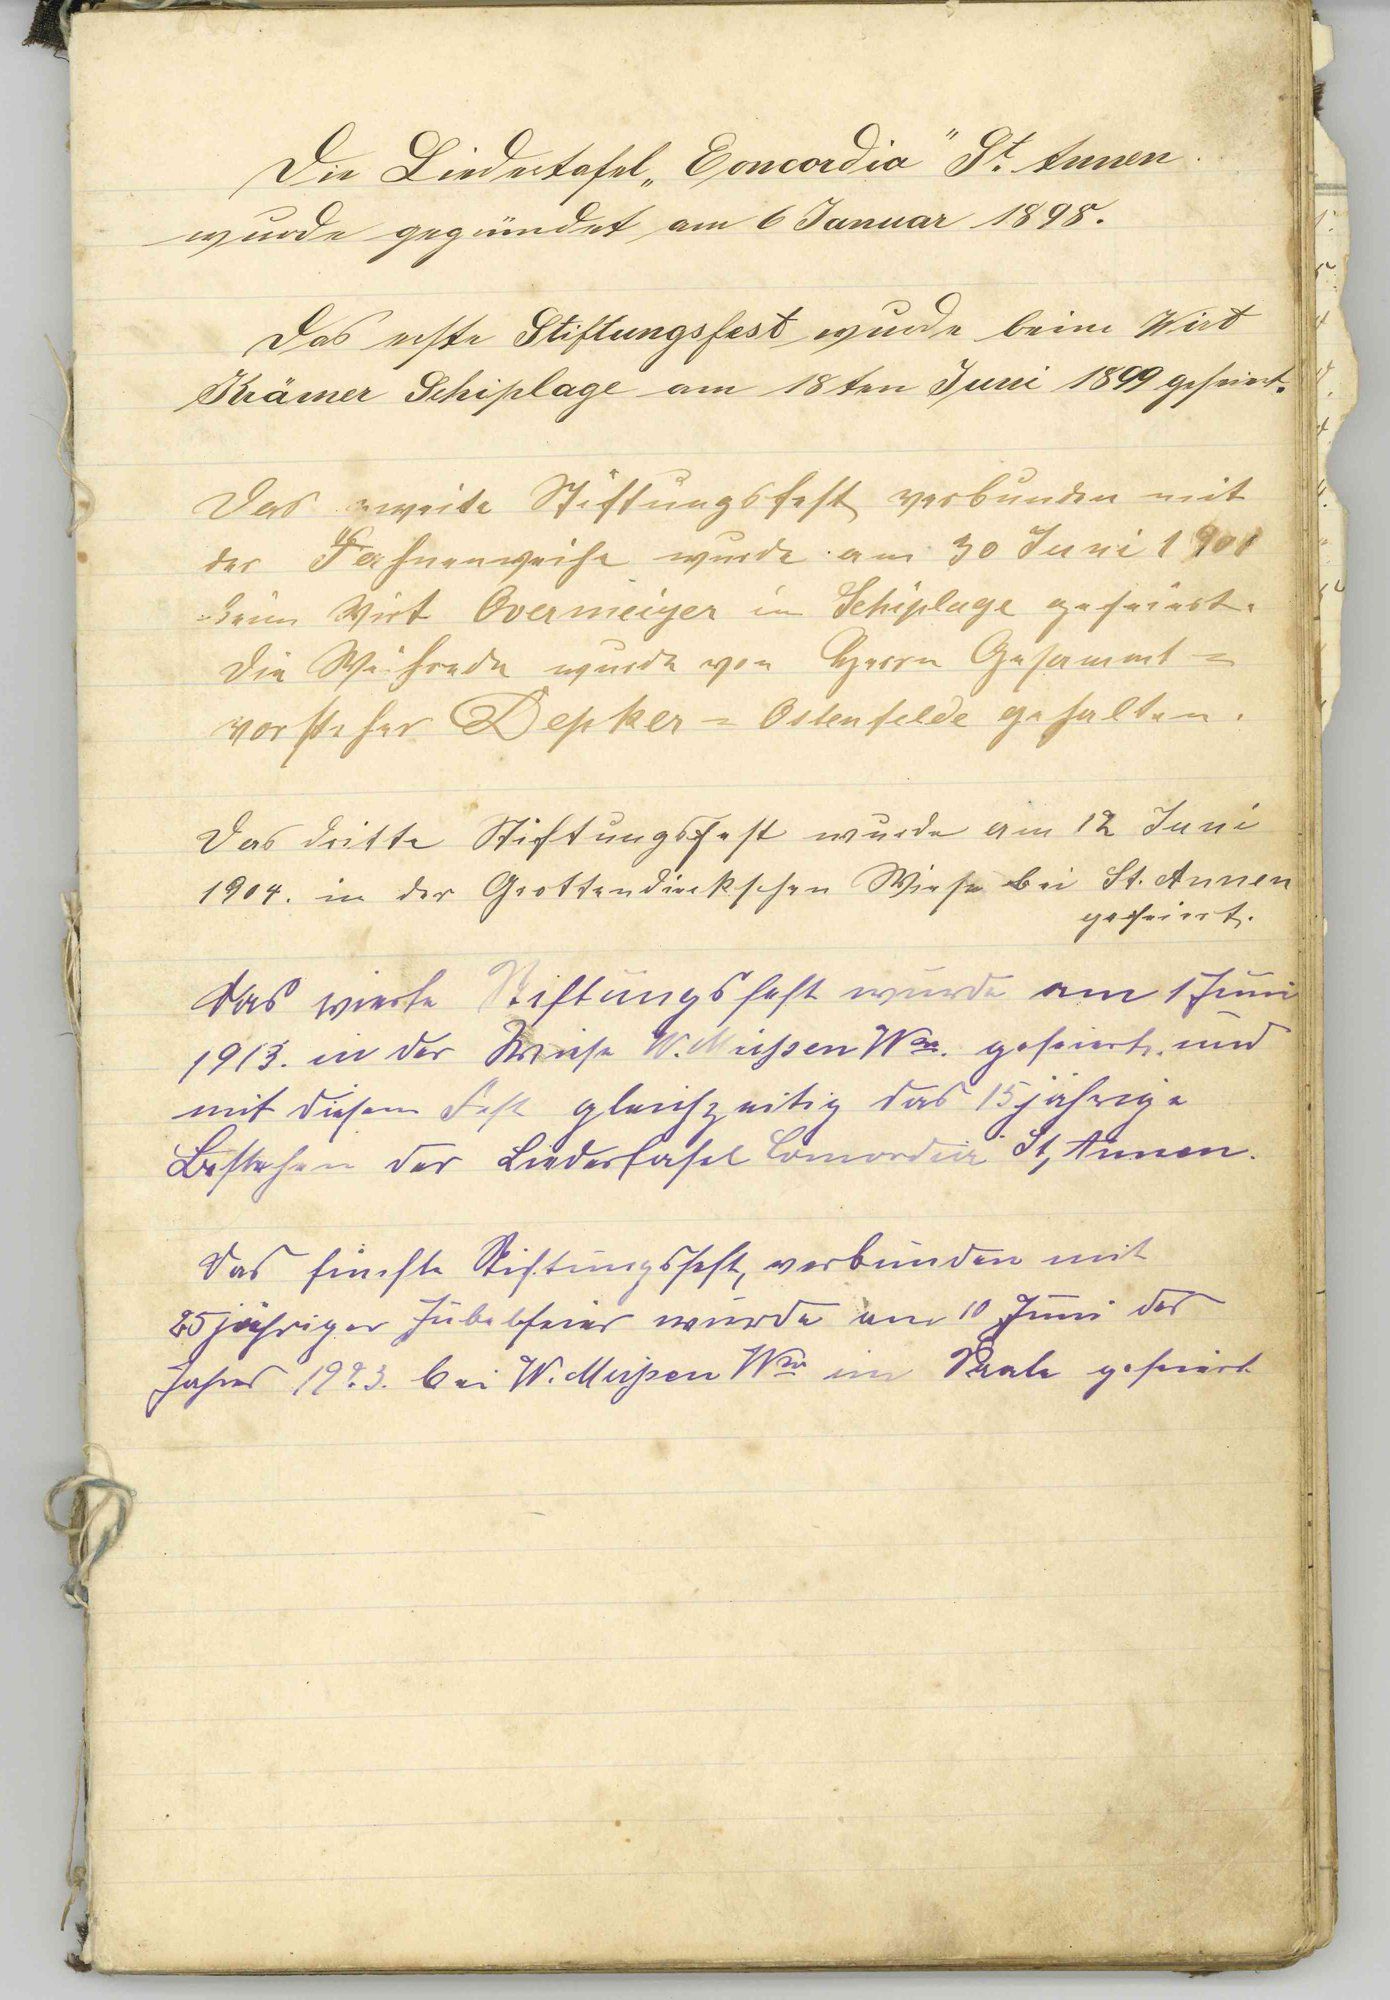 Die Liedertafel „Concordia" St. Annen
wurde gegründet am 6 Januar 1898.
Das erste Stiftungsfest wurde beim Wirt
Krämer Schiplage am 18ten Juni 1899 gefeiert.
Das zweite Stiftungsfest verbunden mit
der Fahnenweihe wurde am 30 Juni 1901
beim Wirt Overmeiyer in Schiplage gefeiert.
Die Weihrede wurde von Herrn Gesammt=
vorsteher Depker = Ostenfelde gehalten.
Das dritte Stiftungsfest wurde am 12 Juni
1904. in der Grottendieckschen Wiese bei St. Annen
gefeiert.
Das vierte Stiftungsfest wurde am 1 Juni
1913. in der Wiese W. Meißen Ww. gefeiert. und
mit diesem Fest gleichzeitig das 15 jährige
Bestehen der Liedertafel Concordia St, Annen.
Das fünfte Stiftungsfest, verbunden mit
25 jähriger Jubelfeier wurde am 10 Juni des
Jahres 1923. bei W. Meißen Ww im Saale gefeiert